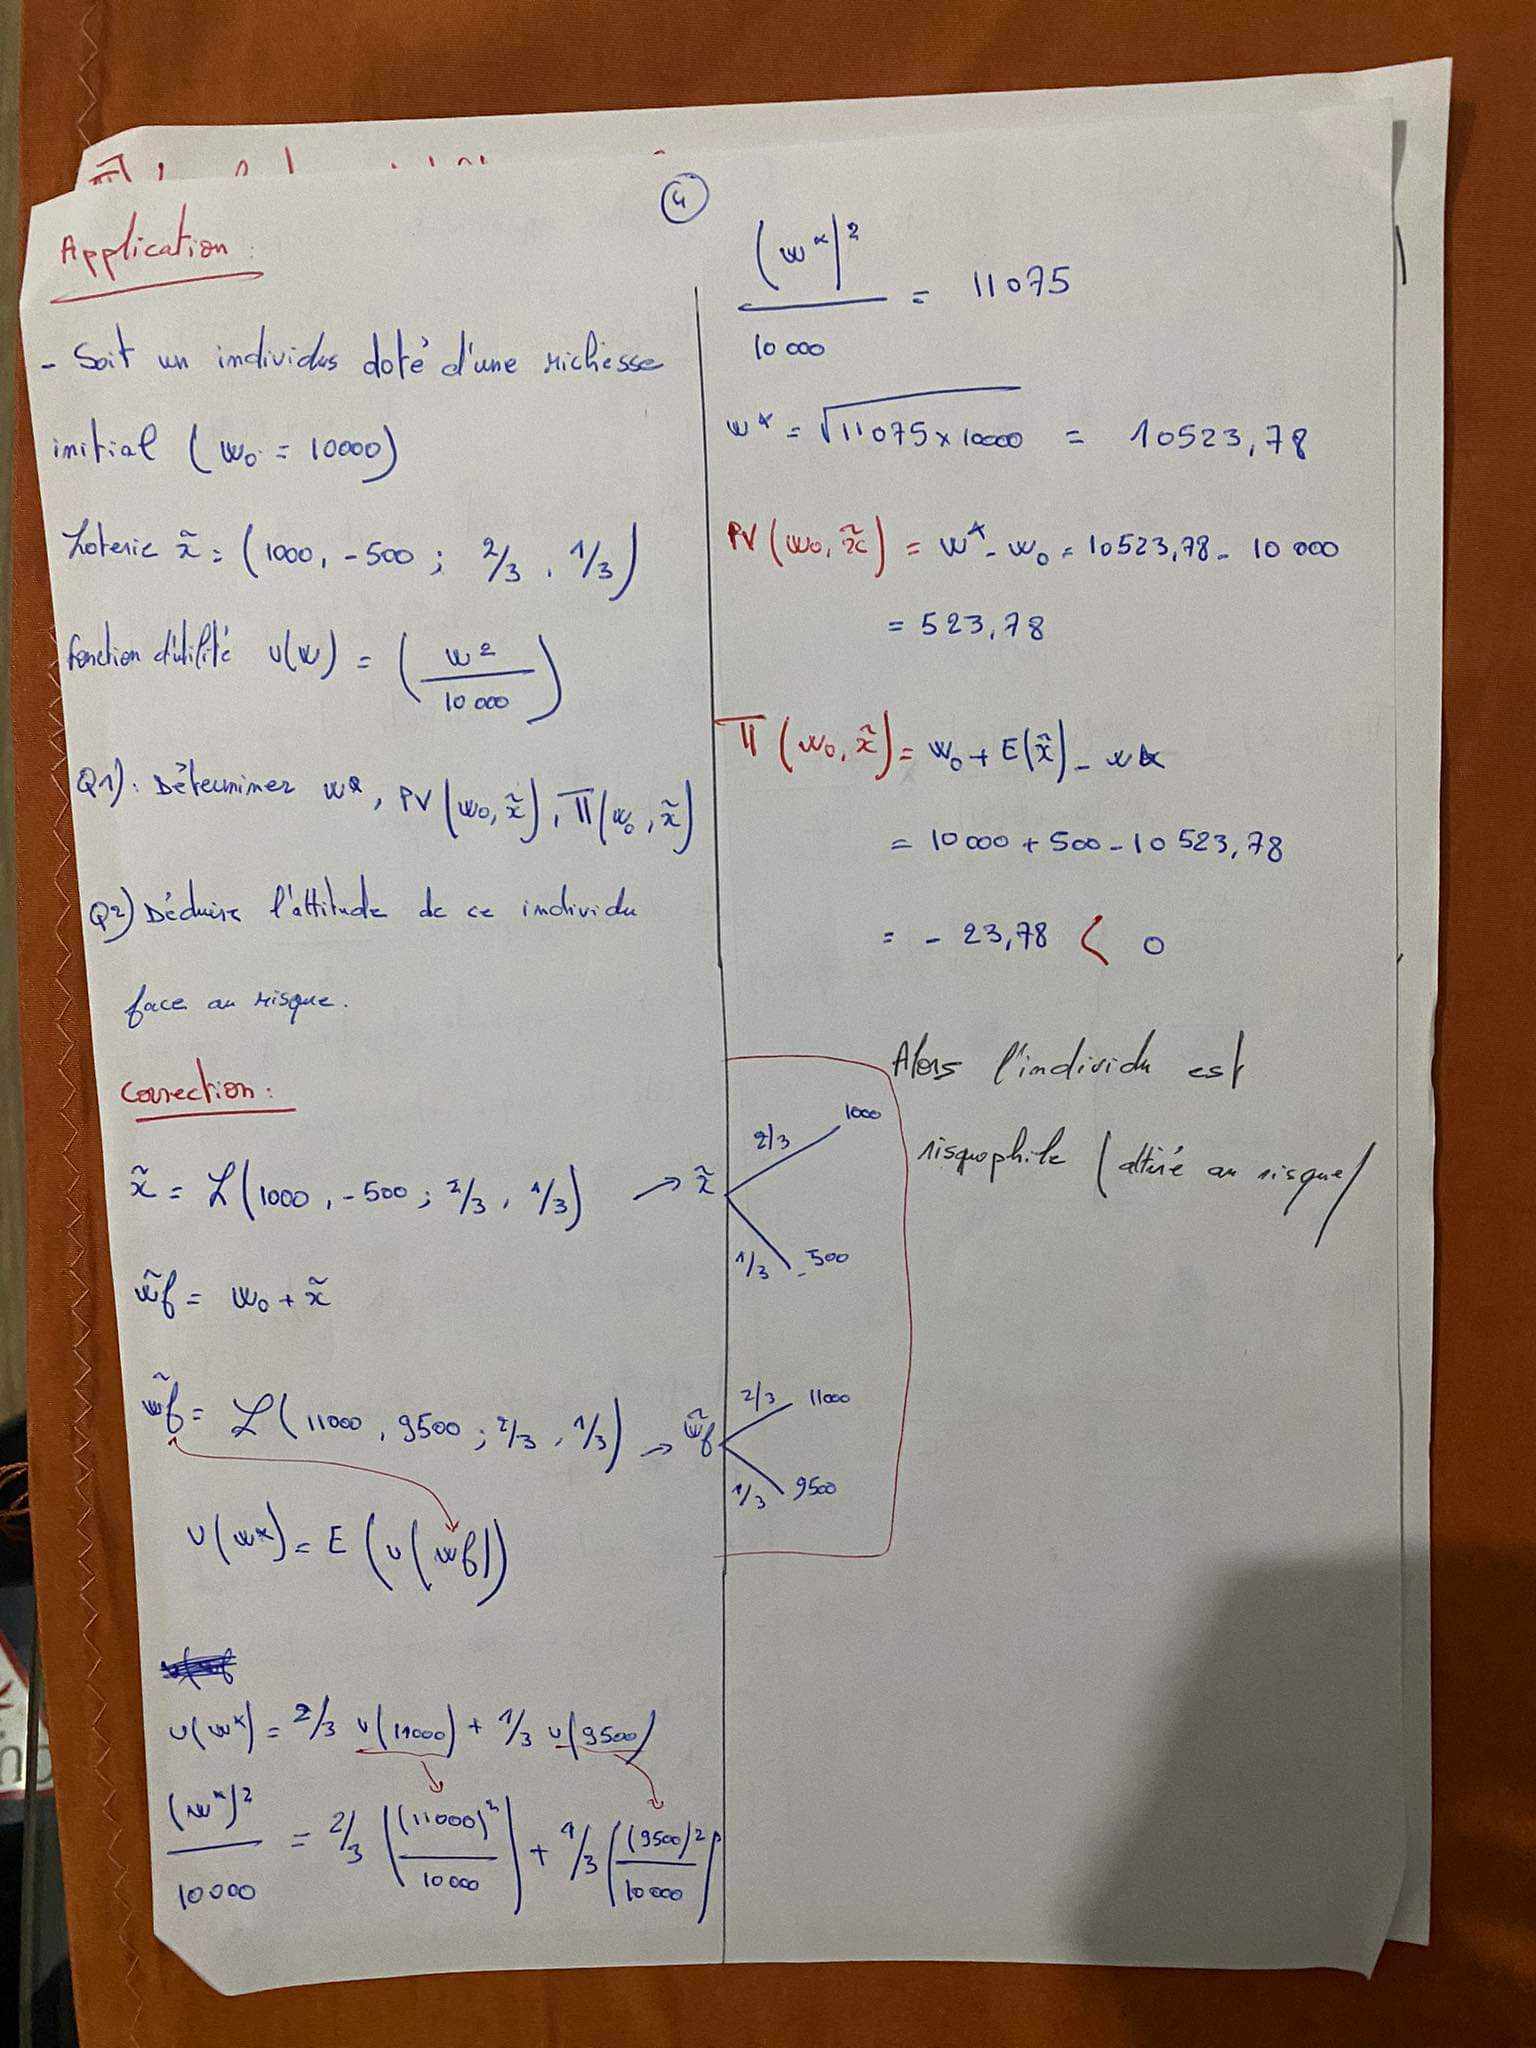 4
Application :
- Soit un individus doté d'une richesse
initial (w₀ = 10000)
Loterie x̃ = (1000, -500 ; 2/3 , 1/3)
fonction d'utilité u(w) = (w² / 10 000)
Q1) : Déterminer w*, PV(w₀, x̃), Π(w₀, x̃)
Q2) Déduire l'attitude de ce individu
face au risque.
Correction :
x̃ = L(1000, -500 ; 2/3 , 1/3) → x̃
2/3 1000
1/3 -500
w̃f = w₀ + x̃
w̃f = L(11000, 9500 ; 2/3 , 1/3) → w̃f
2/3 11000
1/3 9500
u(w*) = E(u(wf))
u(w*) = 2/3 u(11000) + 1/3 u(9500)
(w*)² / 10000 = 2/3 ((11000)² / 10000) + 1/3 ((9500)² / 10000)
(w*)² / 10 000 = 11075
w* = √11075 x 10000 = 10523,78
PV(w₀, x̃) = w* - w₀ = 10523,78 - 10 000
= 523,78
Π(w₀, x̃) = w₀ + E(x̃) - w*
= 10 000 + 500 - 10 523,78
= - 23,78 < 0
Alors l'individu est
risquophile (attiré au risque)